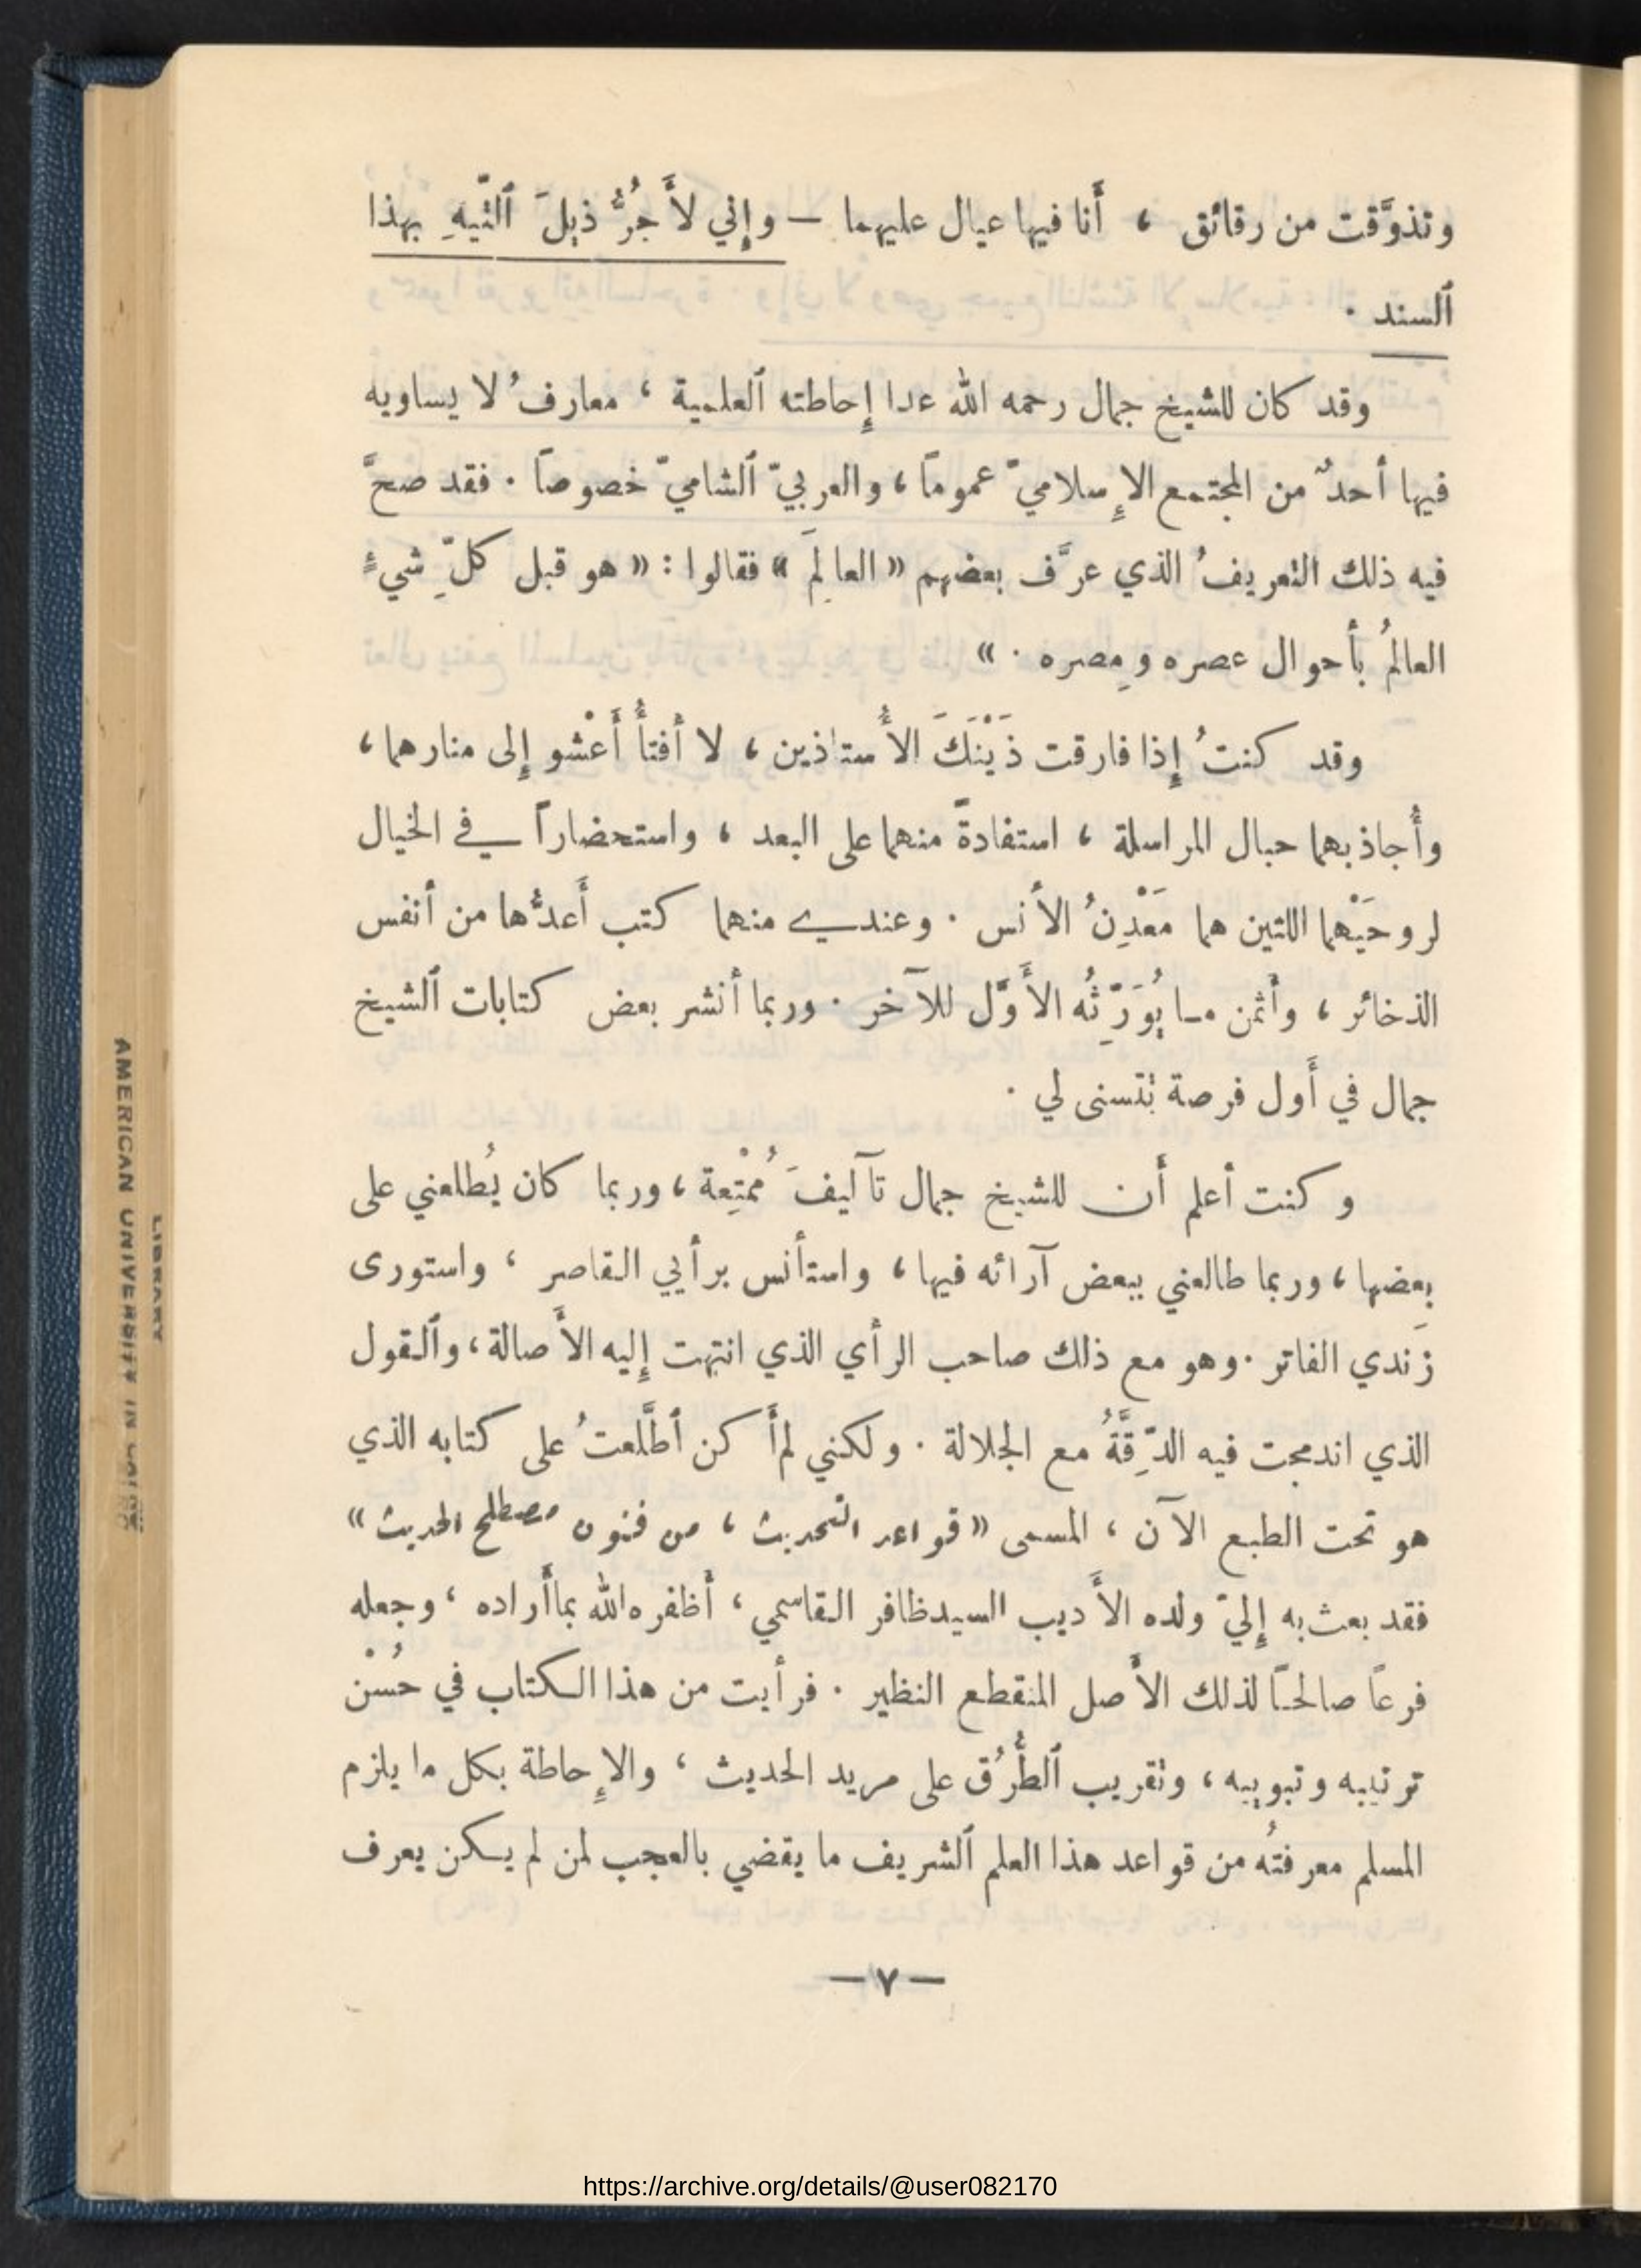 وتذوَّقت من رقائق ، أَنا فيها عيال عليهما — وإِني لأَجُرُّ ذيلَ ٱلتّيهِ بهذا
ٱلسند .
وقد كان للشيخ جمال رحمه الله عدا إِحاطته ٱلعلمية ، معارفُ لا يساويه
فيها أحدٌ من المجتمع الإِسلاميّ عموماً ، والعربيّ ٱلشاميّ خصوصاً . فقد صحَّ
فيه ذلك التعريفُ الذي عرَّف بعضهم « العالِمَ » فقالوا : « هو قبل كلِّ شيءٍ
العالمُ بأَحوال عصره ومِصره . »
وقد كنتُ إِذا فارقت ذَيْنَكَ الأُستاذين ، لا أَفتأُ أَعْشو إِلى منارهما ،
وأُجاذبهما حبال المراسلة ، استفادةً منهما على البعد ، واستحضاراً في الخيال
لروحَيْهما اللتين هما مَعْدِنُ الأنس . وعندي منهما كتب أَعدُّها من أنفس
الذخائر ، وأثمن ما يُوَرِّثُه الأَوَّل للآخر . وربما أنشر بعض كتابات ٱلشيخ
جمال في أَول فرصة تتسنى لي .
وكنت أعلم أَن للشيخ جمال تآليفَ مُمْتِعة ، وربما كان يُطلعني على
بعضها ، وربما طالعني ببعض آرائه فيها ، واستأنس برأيي القاصر ، واستورى
زَندي الفاتر . وهو مع ذلك صاحب الرأي الذي انتهت إِليه الأَصالة ، وٱلقول
الذي اندمجت فيه الدِّقَّةُ مع الجلالة . ولكني لم أَكن ٱطَّلعتُ على كتابه الذي
هو تحت الطبع الآن ، المسمى « قواعد التحديث ، من فنون مصطلح الحديث »
فقد بعث به إِليّ ولده الأَديب السيد ظافر القاسمي ، أَظفره الله بما أَراده ، وجعله
فرعاً صالحاً لذلك الأَصل المنقطع النظير . فرأيت من هذا الكتاب في حُسْن
ترتيبه وتبويبه ، وتقريب ٱلطُّرُق على مريد الحديث ، والإِحاطة بكل ما يلزم
المسلم معرفتُه من قواعد هذا العلم ٱلشريف ما يقضي بالعجب لمن لم يكن يعرف
— ٧ —
LIBRARY
AMERICAN UNIVERSITY IN CAIRO
https://archive.org/details/@user082170